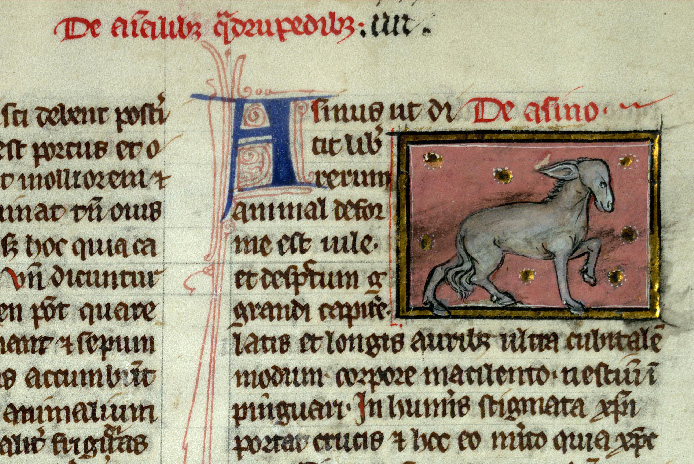 De cunctilibus quadrupedibus. iiii.
sci debent post
est porcus et o
t molliorem ⁊
uinat tn ouis
hoc quia ca
vn dicuntur
en pot quare
nant ⁊ sepium
s accumbunt
animalium
Asinus ut di De asino
cit lib
rerum
animal defor
me est uile.
et despectum g
grandi capite.
latis et longis auribz ultra cubitale
modum corpore macilento. nesciu i
pinguari. In humis stigmata xpi
portat crucis ⁊ hec eo mito quia xpc